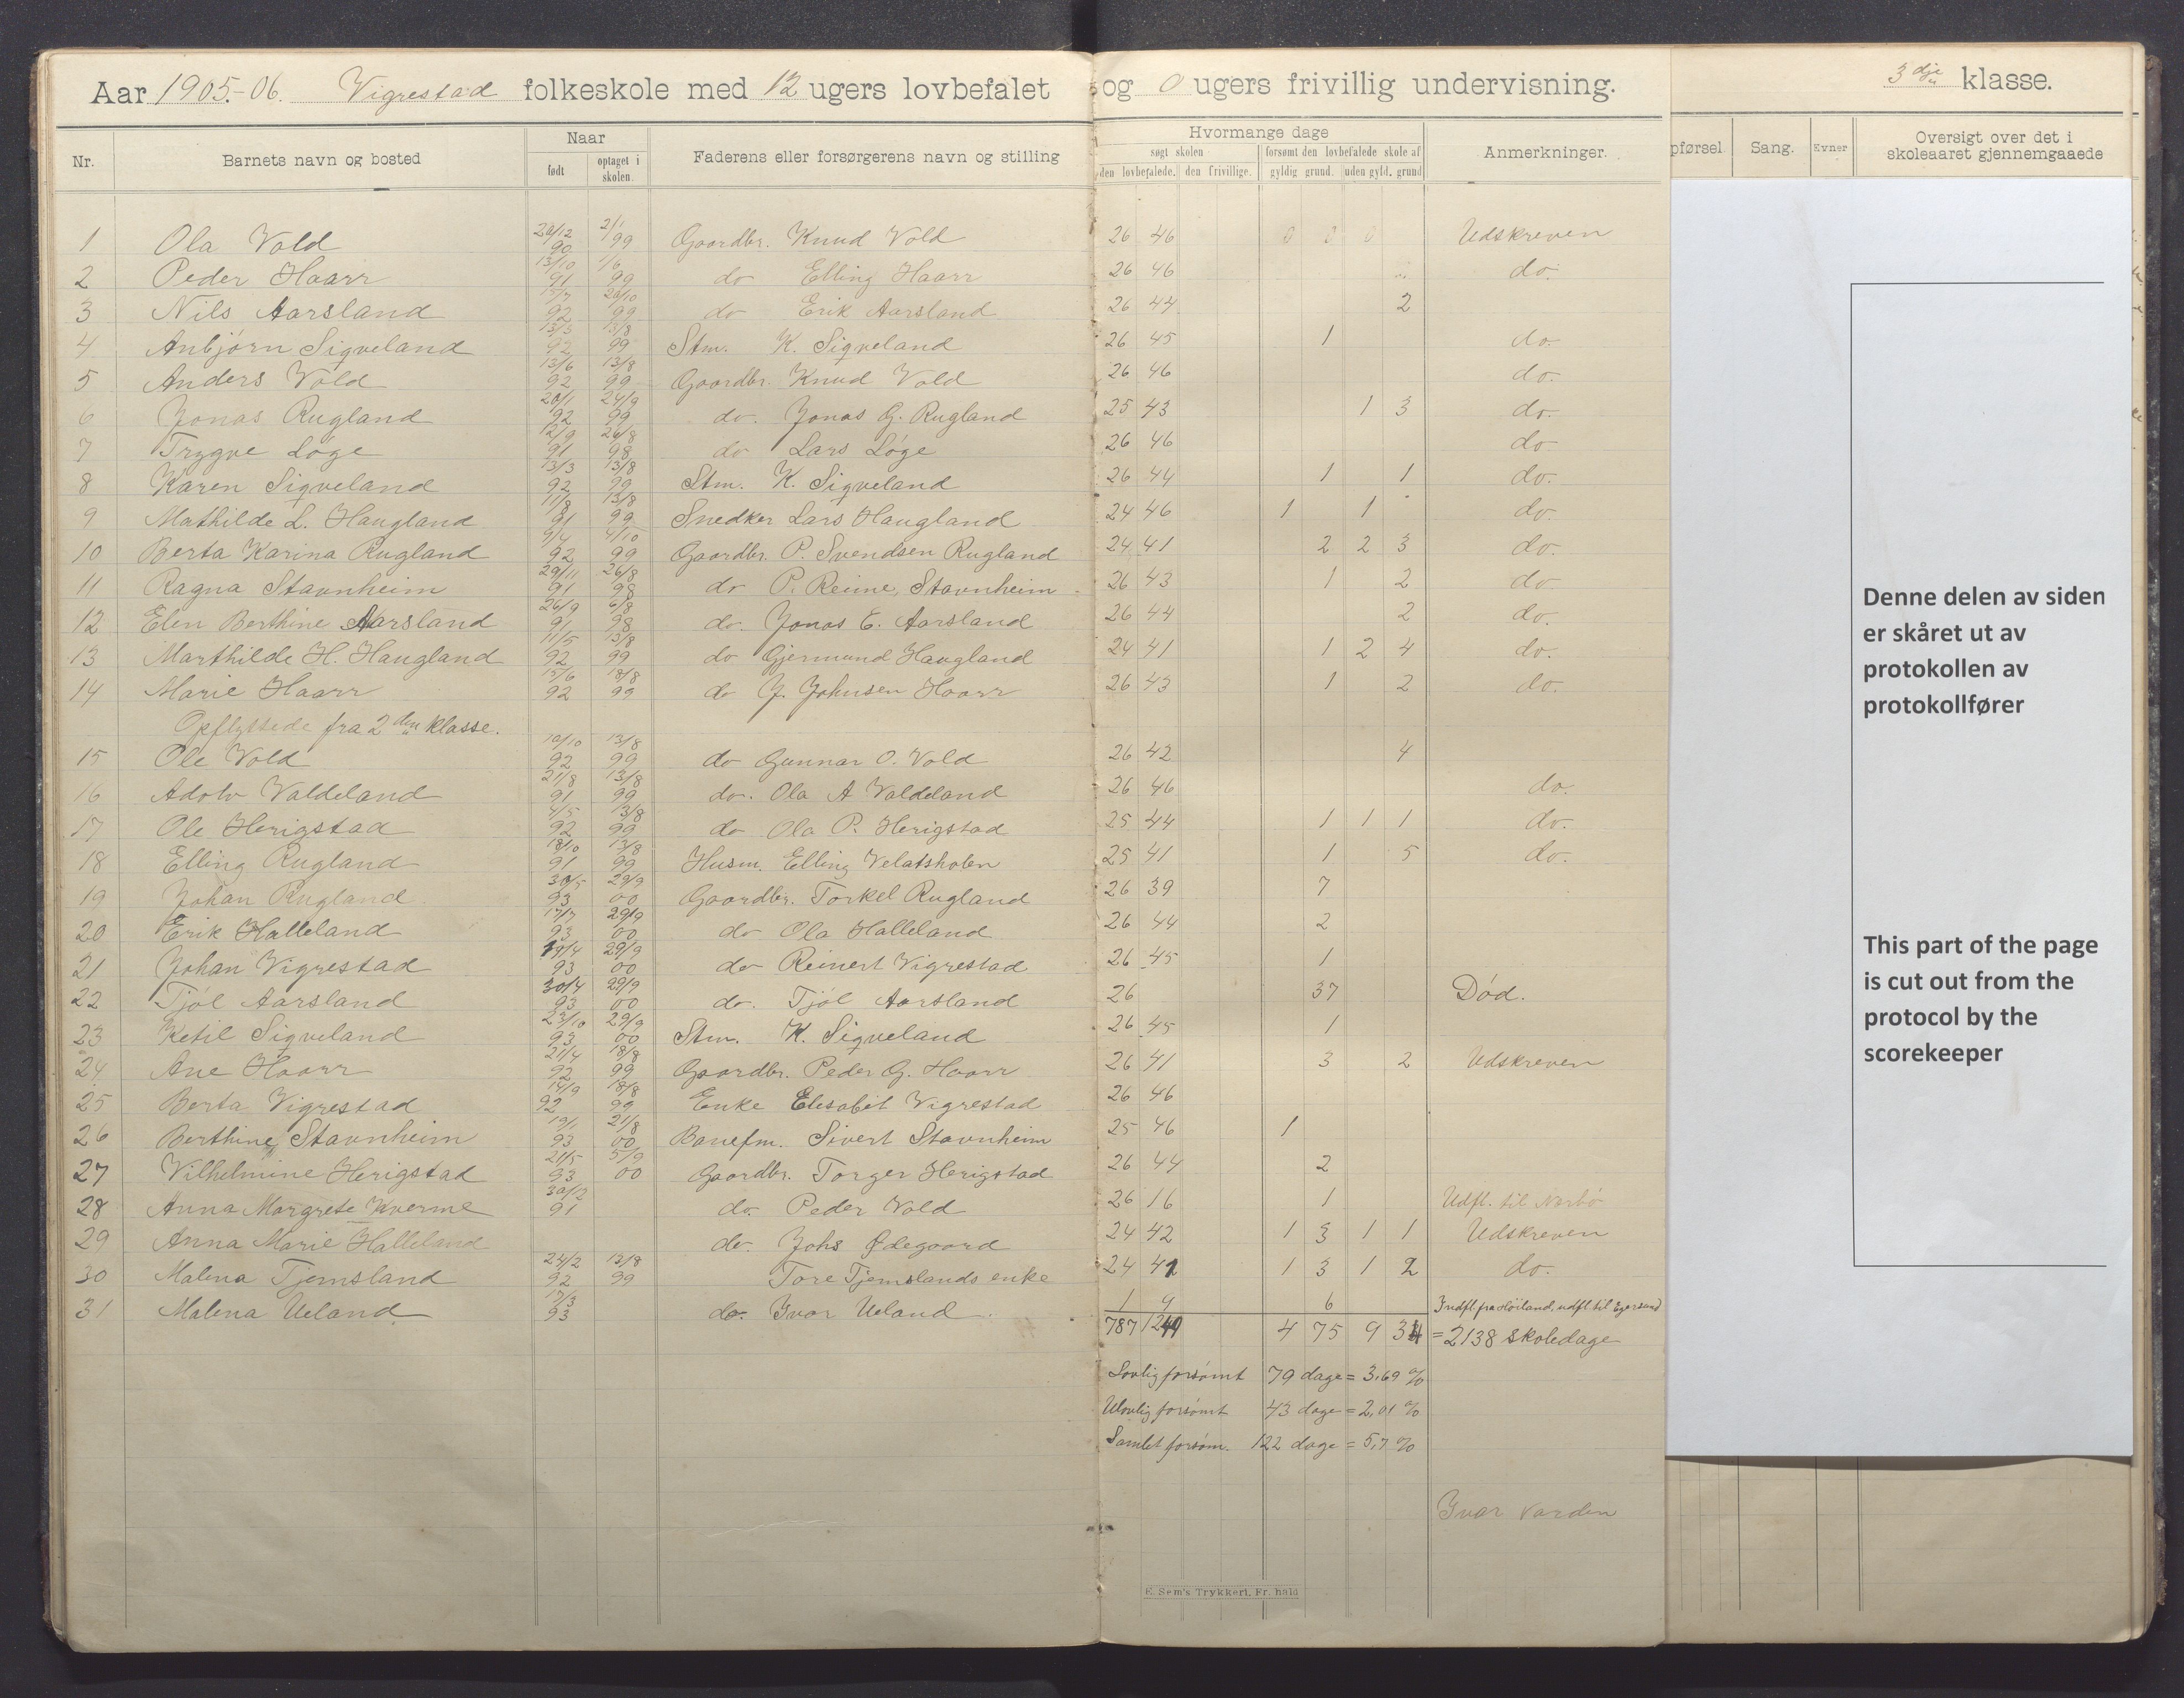 Aar 1905-06. Vigrestad folkeskole med 12 ugers lovbefalet og 0 ugers frivillig undervisning. 3dje klasse.
Nr. Barnets navn og bosted Naar født optaget i skolen. Faderens eller forsørgerens navn og stilling Hvormange dage søgt skolen den lovbefalede. den frivillige. forsømt den lovbefalede skole af gyldig grund. uden gyld. grund Anmerkninger. pførsel Sang. Evner Oversigt over det i skoleaaret gjennemgaaede
1 Ola Vold 20/12 90 2/1 99 Gaardbr. Knud Vold 26 46 0 0 0 Udskreven
2 Peder Haarr 13/10 91 1/6 99 do Elling Haarr 26 46 do.
3 Nils Aarsland 15/7 92 20/10 99 do Erik Aarsland 26 44 2
4 Anbjørn Sigveland 13/3 92 13/8 99 Stm. K. Sigveland 26 45 1 do.
5 Anders Vold 13/6 92 13/8 99 Gaardbr. Knud Vold 26 46 do.
6 Jonas Rugland 20/1 92 24/9 99 do. Jonas G. Rugland 25 43 1 3 do.
7 Trygve Løge 12/9 91 26/8 98 do Lars Løge 26 46 do
8 Karen Sigveland 13/3 92 13/8 99 Stm. K. Sigveland 26 44 1 1 do.
9 Mathilde L. Haugland 11/8 91 13/8 99 Snedker Lars Haugland 24 46 1 1 do.
10 Berta Karina Rugland 9/4 92 4/10 99 Gaardbr. P. Svendsen Rugland 24 41 2 2 3 do.
11 Ragna Stavnheim 29/11 91 26/8 98 do P. Reime, Stavnheim 26 43 1 2 do
12 Elen Berthine Aarsland 26/9 91 6/8 98 do. Jonas E. Aarsland 26 44 2 do.
13 Marthilde H. Haugland 11/5 92 13/8 99 do Gjermund Haugland 24 41 1 2 4 do.
14 Marie Haarr 15/6 92 18/8 99 do J. Johnsen Haarr 26 43 1 2 do.
Opflyttede fra 2den klasse.
15 Ole Vold 10/10 92 13/8 99 do Gunnar O. Vold 26 42 4
16 Adolv Valdeland 21/8 91 13/8 99 do. Ola A Valdeland 26 46 do.
17 Ole Herigstad 4/5 92 13/8 99 do Ola P. Herigstad 25 44 1 1 1 do.
18 Elling Rugland 18/10 91 13/8 99 Husm. Elling Velatsholen 25 41 1 5 do.
19 Johan Rugland 30/5 93 29/9 00 Gaardbr. Torkel Rugland 26 39 7
20 Erik Halleland 17/7 93 29/9 00 do Ola Halleland 26 44 2
21 Johan Vigrestad 19/4 93 29/9 00 do Reinert Vigrestad 26 45 1
22 Tjøl Aarsland 30/4 93 29/9 00 do. Tjøl Aarsland 26 37 Død.
23 Ketil Sigveland 23/10 93 29/9 00 Stm. K. Sigveland 26 45 1
24 Ane Haarr 21/4 92 18/8 99 Gaardbr. Peder G. Haarr 26 41 3 2 Udskreven
25 Berta Vigrestad 14/9 92 18/8 99 Enke Elisabet Vigrestad 26 46
26 Berthine Stavnheim 19/1 93 21/8 00 Banefm. Sivert Stavnheim 25 46 1
27 Vilhelmine Herigstad 21/5 93 5/9 00 Gaardbr. Torger Herigstad 26 44 2
28 Anna Margrete Kverme 30/12 91 do. Peder Vold 26 16 1 Udfl. til Nærbø
29 Anna Marie Halleland do. Johs Ødegaard 24 42 1 3 1 1 Udskreven
30 Malena Tjemsland 24/2 92 13/8 99 Tore Tjemslands enke 24 41 1 3 1 2 do.
31 Malena Ueland 13/3 93 do. Ivar Ueland 1 9 6 Indfl. fra Høiland, udfl. til Egersund
787 1249 4 75 9 34 = 2138 skoledage
Lovlig forsømt 79 dage = 3,69 %
Ulovlig forsømt 43 dage = 2,01 %
Samlet forsøm. 122 dage = 5,7 %
Ivar Varden
E. Sem's Trykkeri, Fr. hald
Denne delen av siden
er skåret ut av
protokollen av
protokollfører
This part of the page
is cut out from the
protocol by the
scorekeeper